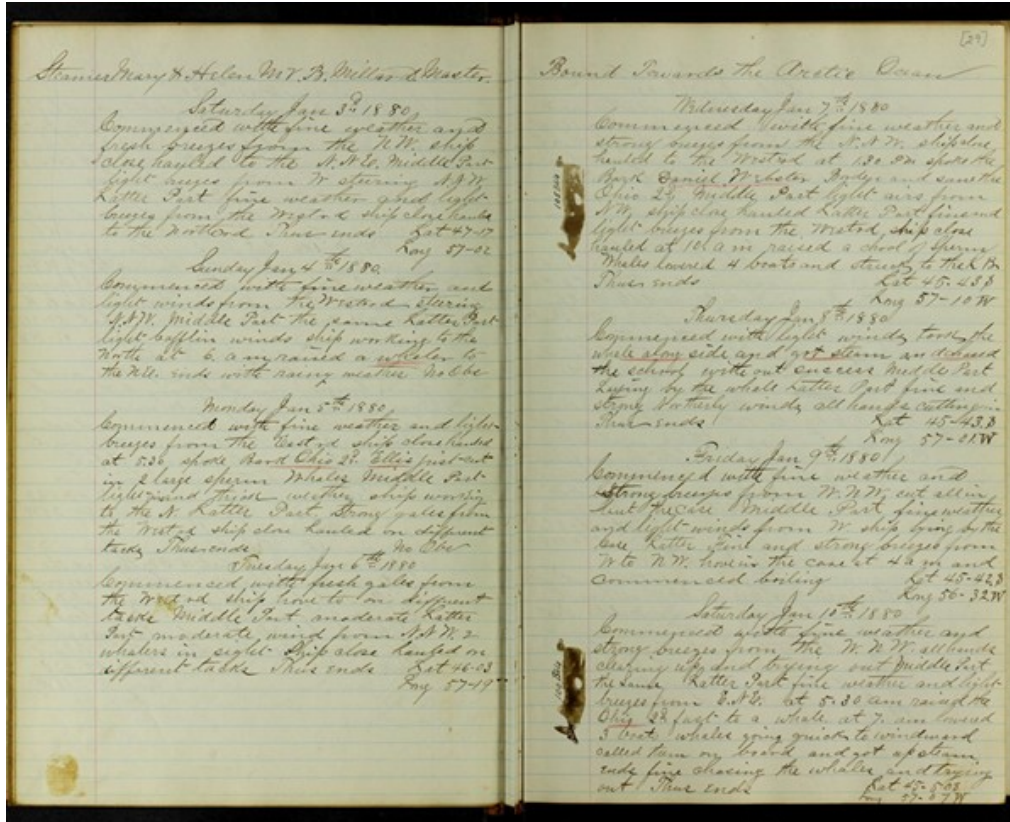 Steamer Mary & Helen M. V. B. Millard Master.
Saturday Jan 3d 1880
Commenced with fine weather and
fresh breezes from the N.W. ship
close hauled to the N.N.E. Middle Part
light breezes from W steering N.N.W
Latter Part fine weather and light
breezes from the Westrd ship close hauled
to the Northord Thus ends Lat 47-17
Long 57-02
Sunday Jan 4th 1880.
Commenced with fine weather and
light winds from the Westrd steering
N.N.W. Middle Part the same Latter Part
light bafflin winds ship working to the
North at 6. a m raised a whaler to
the NE. ends with rainy weather No Obs
Monday Jan 5th 1880
Commenced with fine weather and light
breezes from the Eastrd ship close hauled
at 5.30 spoke Ohio 2d. Ellis just cut
in 2 large sperm Whales Middle Part
light wind thick weather ship working
to the N. Latter Part Strong gales from
the Westrd ship close hauled on different
tacks Thus ends No Obs
Tuesday Jan 6th 1880
Commenced with fresh gales from
the Westrd ship hove to on different
tacks Middle Part moderate Latter
Part moderate wind from N.N.W. 2
whalers in sight Ship close hauled on
different tacks Thus ends Lat 46-03
Long 57-19
[29]
Bound Towards the Arctic Ocean
Wednesday Jan 7th 1880
Commenced with fine weather and
strong breezes from the N.N.W. ship close
hauled to the Westrd at 1.30 PM spoke the
Bark Daniel Webster and saw the
Ohio 2d Middle Part light airs from
N.W. ship close hauled Latter Part fine and
light breezes from the Westrd ship close
hauled at 10. a m raised a chool of sperm
Whales lowered 4 boats and struck to the L B
Thus ends Lat 45-43 S
Long 57-10 W
Thursday Jan 8th 1880
Commenced with light winds took the
whale along side and got steam an chased
the school with out success Middle Part
Laying by the whale Latter Part fine and
strong Northerly winds all hands cutting in
Thus ends Lat 45-43 S
Long 57-21 W
Friday Jan 9th 1880
Commenced with fine weather and
Strong breezes from W.N.W. cut all in
but the case Middle Part fine weather
and light winds from W. ship lying by the
Case Latter Fine and strong breezes from
W to N.W. hove in the case at 4 a m and
commenced boiling Lat 45-42 S
Long 56-32 W
Saturday Jan 10th 1880
Commenced with fine weather and
strong breezes from the W.N.W. all hands
clearing up and trying out Middle Part
the same Latter Part fine weather and light
breezes from E.N.E. at 5.30 am raised the
Ohio 2d fast to a whale at 7. am lowered
3 boats whales going quick to windward
called tum on board and got up steam
ends fine chasing the whales and trying
out Thus ends Lat 45-50 S
Long 57-07 W